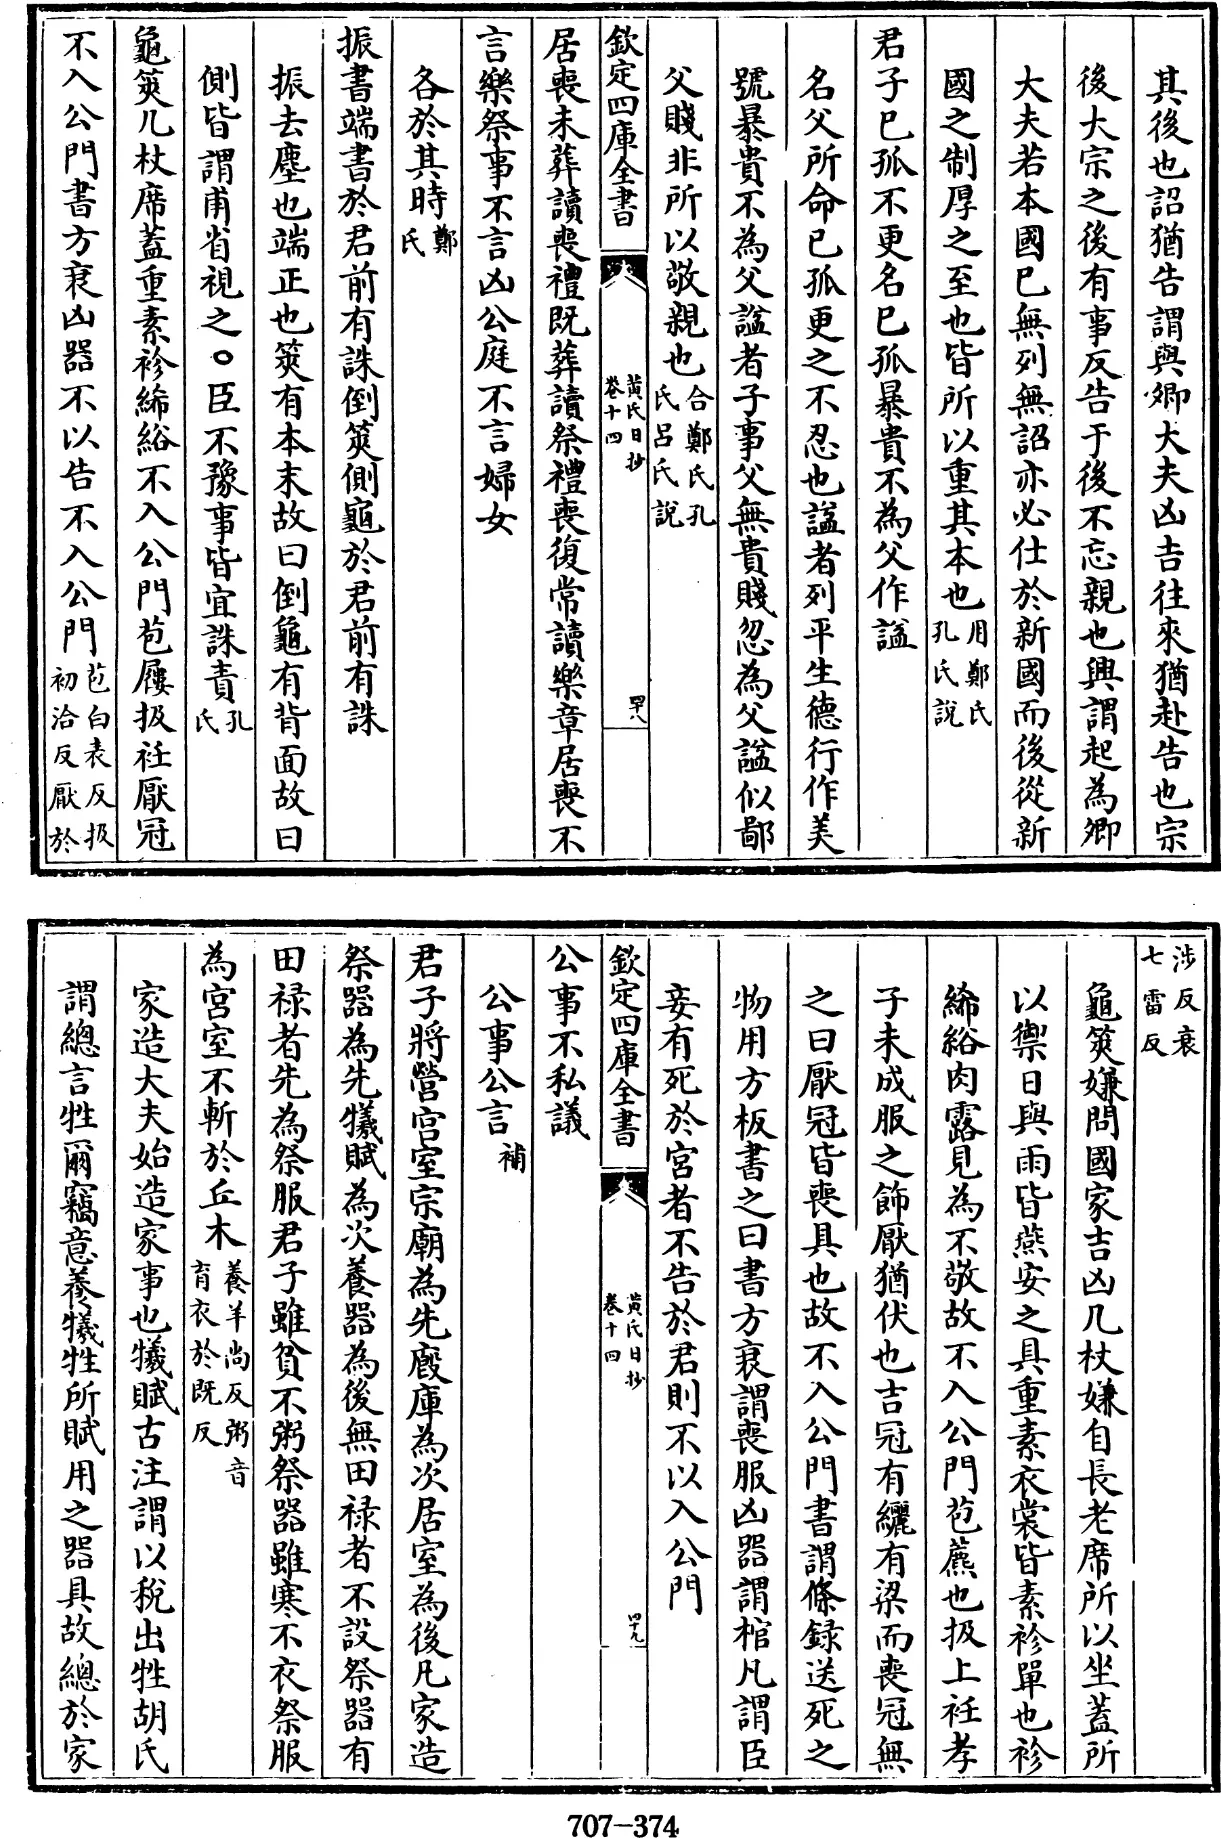 其後也詔猶告謂與卿大夫凶吉往來猶赴告也宗
後大宗之後有事反告于後不忘親也興謂起為卿
大夫若本國已無列無詔亦必仕於新國而後從新
國之制厚之至也皆所以重其本也用鄭氏孔氏說
君子已孤不更名已孤暴貴不為父作諡
名父所命已孤更之不忍也諡者列平生德行作美
號暴貴不為父諡者子事父無貴賤忽為父諡似鄙
父賤非所以敬親也合鄭氏孔氏呂氏說
欽定四庫全書 黃氏日抄卷十四 四十八
居喪未葬讀喪禮既葬讀祭禮喪復常讀樂章居喪不
言樂祭事不言凶公庭不言婦女
各於其時鄭氏
振書端書於君前有誅倒筴側龜於君前有誅
振去塵也端正也筴有本末故曰倒龜有背面故曰
側皆謂甫省視之○臣不豫事皆宜誅責孔氏
龜筴几杖席蓋重素袗絺綌不入公門苞屨扱衽厭冠
不入公門書方衰凶器不以告不入公門苞白表反扱初洽反厭於
涉反衰七雷反
龜筴嫌問國家吉凶几杖嫌自長老席所以坐蓋所
以禦日與雨皆燕安之具重素衣裳皆素袗單也袗
絺綌肉露見為不敬故不入公門苞藨也扱上衽孝
子未成服之飾厭猶伏也吉冠有纚有梁而喪冠無
之曰厭冠皆喪具也故不入公門書謂條録送死之
物用方板書之曰書方衰謂喪服凶器謂棺凡謂臣
妾有死於宮者不告於君則不以入公門
欽定四庫全書 黃氏日抄卷十四 四十九
公事不私議
公事公言補
君子將營宮室宗廟為先廏庫為次居室為後凡家造
祭器為先犧賦為次養器為後無田禄者不設祭器有
田禄者先為祭服君子雖貧不粥祭器雖寒不衣祭服
為宮室不斬於丘木養羊尚反粥音育衣於既反
家造大夫始造家事也犧賦古注謂以稅出牲胡氏
謂總言牲爾竊意養犧牲所賦用之器具故總於家
707-374